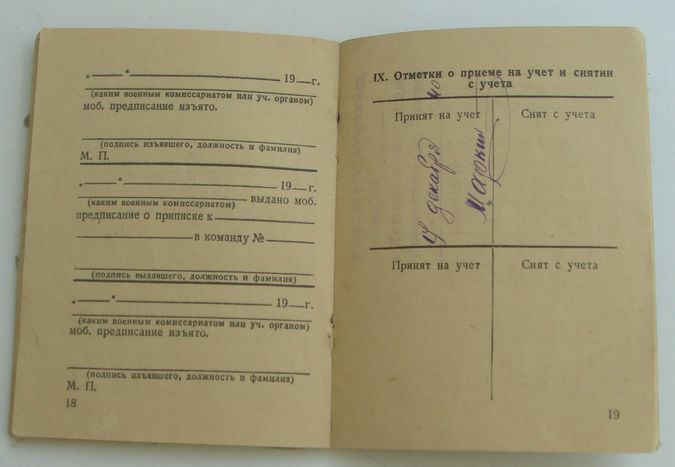 „ — “ 19 — г.
(каким военным комиссариатом или уч. органом)
моб. предписание изъято.
(подпись изъявшего, должность и фамилия)
М. П.
„ — “ 19 — г.
(каким военным комиссариатом) выдано моб.
предписание о приписке к
в команду №
(подпись выдавшего, должность и фамилия)
„ — “ 19 — г.
(каким военным комиссариатом или уч. органом)
моб. предписание изъято.
(подпись изъявшего, должность и фамилия)
М. П.
18
IX. Отметки о приеме на учет и снятии
с учета
Принят на учет
Снят с учета
декабря
Принят на учет
Снят с учета
19